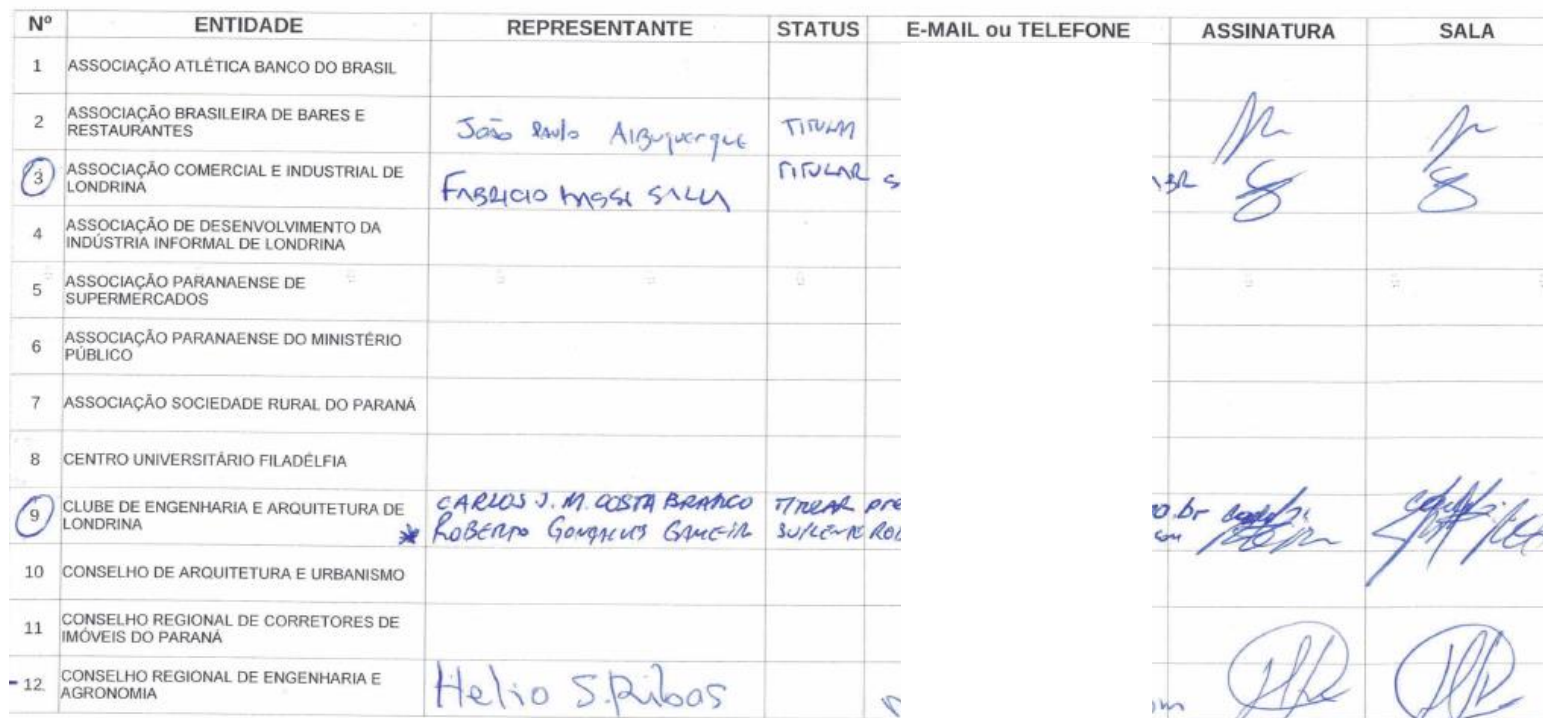 Nº ENTIDADE REPRESENTANTE STATUS E-MAIL ou TELEFONE ASSINATURA SALA
1 ASSOCIAÇÃO ATLÉTICA BANCO DO BRASIL
2 ASSOCIAÇÃO BRASILEIRA DE BARES E
RESTAURANTES
João Paulo Albuquerque TITULAR
3 ASSOCIAÇÃO COMERCIAL E INDUSTRIAL DE
LONDRINA
FABRICIO TITULAR S
BR
4 ASSOCIAÇÃO DE DESENVOLVIMENTO DA
INDÚSTRIA INFORMAL DE LONDRINA
5 ASSOCIAÇÃO PARANAENSE DE
SUPERMERCADOS
6 ASSOCIAÇÃO PARANAENSE DO MINISTÉRIO
PÚBLICO
7 ASSOCIAÇÃO SOCIEDADE RURAL DO PARANÁ
8 CENTRO UNIVERSITÁRIO FILADÉLFIA
9 CLUBE DE ENGENHARIA E ARQUITETURA DE
LONDRINA
CARLOS J. M. COSTA BRANCO TITULAR pre o.br
ROBERTO GONÇALVES SUPLENTE
10 CONSELHO DE ARQUITETURA E URBANISMO
11 CONSELHO REGIONAL DE CORRETORES DE
IMÓVEIS DO PARANÁ
12 CONSELHO REGIONAL DE ENGENHARIA E
AGRONOMIA
Helio S. Ribas om